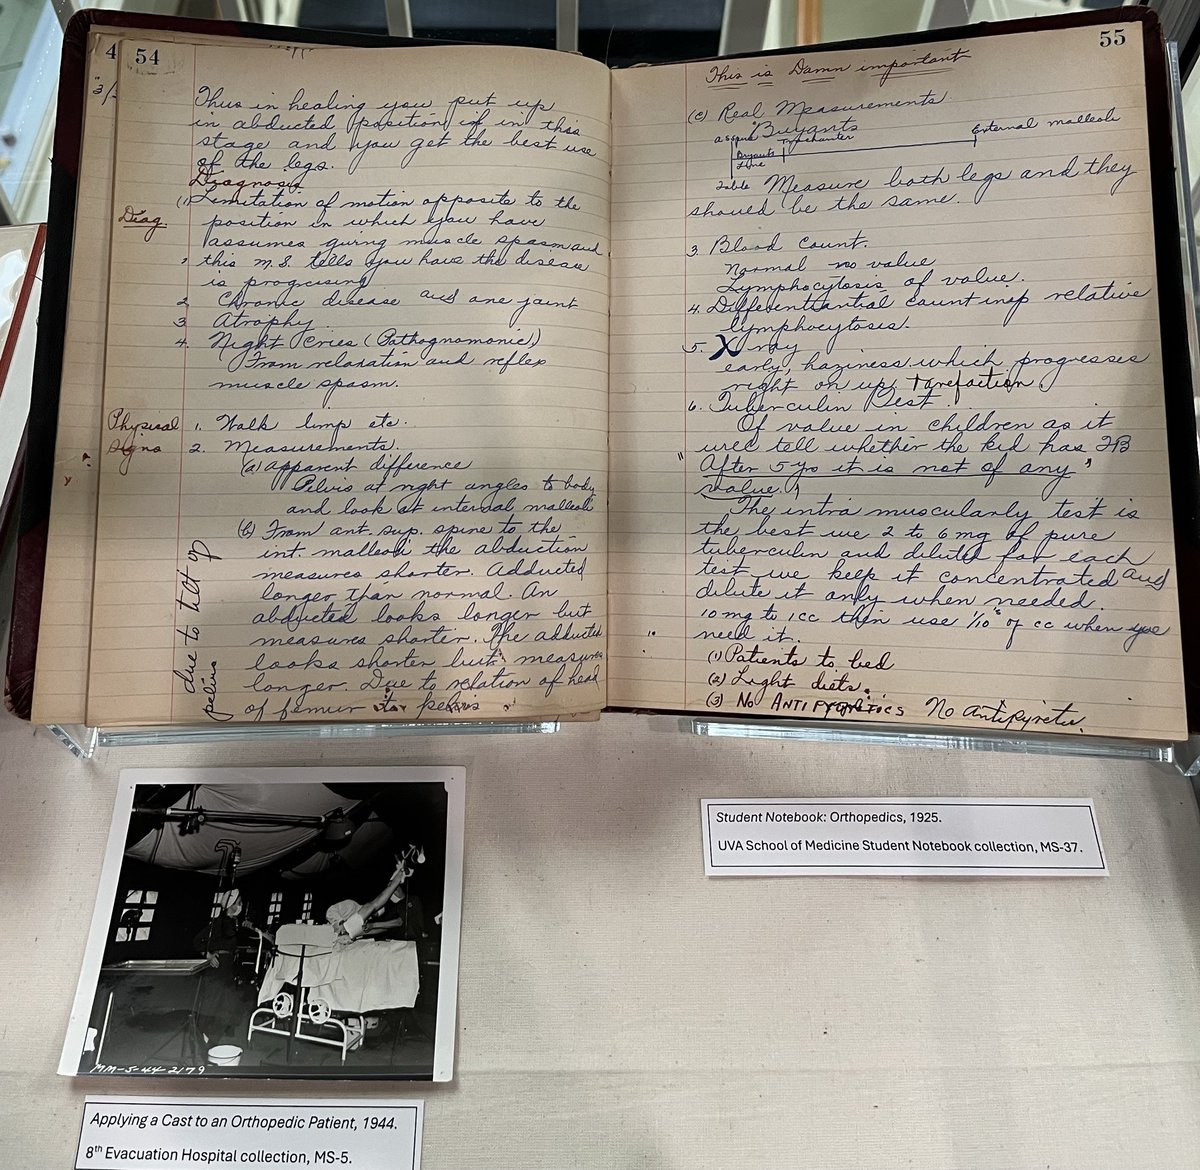 54
Thus in healing you put up
in abducted position if in this
stage and you get the best use
of the legs.
Diagnosis.
Diag.
(1) Limitation of motion opposite to the
position in which you have
assumes giving muscle spasm and
this m.s. tells you have the disease
is progressing
2 Chronic disease and one joint
3 Atrophy.
4. Night Cries (Pathognomonic)
From relaxation and reflex
muscle spasm.
Physical Signs
1. Walk limp etc.
2. Measurements.
(a) apparent difference
Pelvis at right angles to body
and look at internal malleoli
(b) From ant. sup. spine to the
int. malleoli the abduction
measures shorter. Adducted
longer than normal. An
abducted looks longer but
measures shorter. The adducted
looks shorter but measures
longer. Due to relation of head
of femur to pelvis
due to tilt of
pelvis
55
This is Damn important
(c) Real Measurements
Bryants
a s spine
Trochanter
External malleoli
Bryants
Line
Table
Measure both legs and they
should be the same.
3. Blood Count.
Normal no value
Lymphocytosis of value.
4. Differentiantial count insp relative
lymphocytosis.
5. X ray
early, haziness which progresses
right on up + rarefaction.
6. Tuberculin Test.
Of value in children as it
will tell whether the kid has TB
" After 5 yrs it is not of any "
value.
The intra muscularly test is
the best we 2 to 6 mg of pure
tuberculin and diluted for each
test we keep it concentrated and
dilute it only when needed.
10 mg to 1 cc then use 1/10's of cc when you
need it.
(1) Patients to bed
(2) Light diets.
(3) No ANTIPYRETICS No Antipyretic
Student Notebook: Orthopedics, 1925.
UVA School of Medicine Student Notebook collection, MS-37.
MM-5-44-2179
Applying a Cast to an Orthopedic Patient, 1944.
8th Evacuation Hospital collection, MS-5.